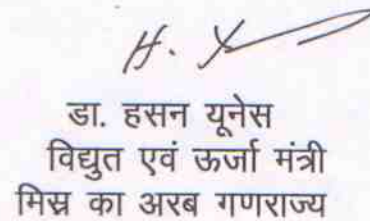 H. Y
डा. हसन यूनेस
विद्युत एवं ऊर्जा मंत्री
मिस्र का अरब गणराज्य